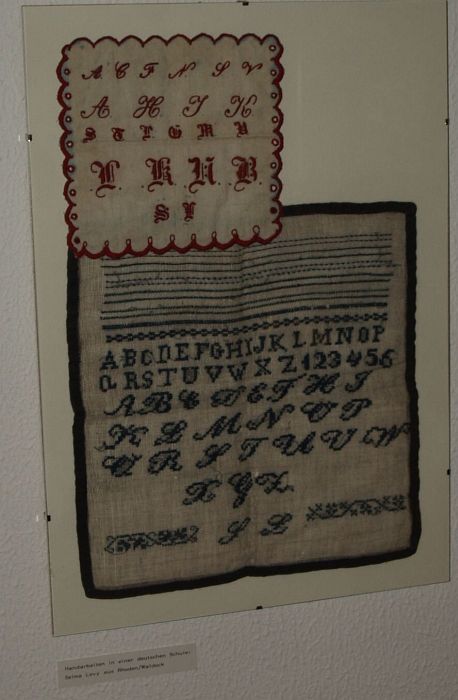 A C F N S V
A H J K
S T F G M V
L K N B
S L
ABCDEFGHIJKLMNOP
QRSTUVWXZ123456
A B C D E F H I
K L M N O P
Q R S T U V W
X Y Z
S L
Handarbeiten in einer deutschen Schule:
Selma Levy aus Rhoden/Waldeck